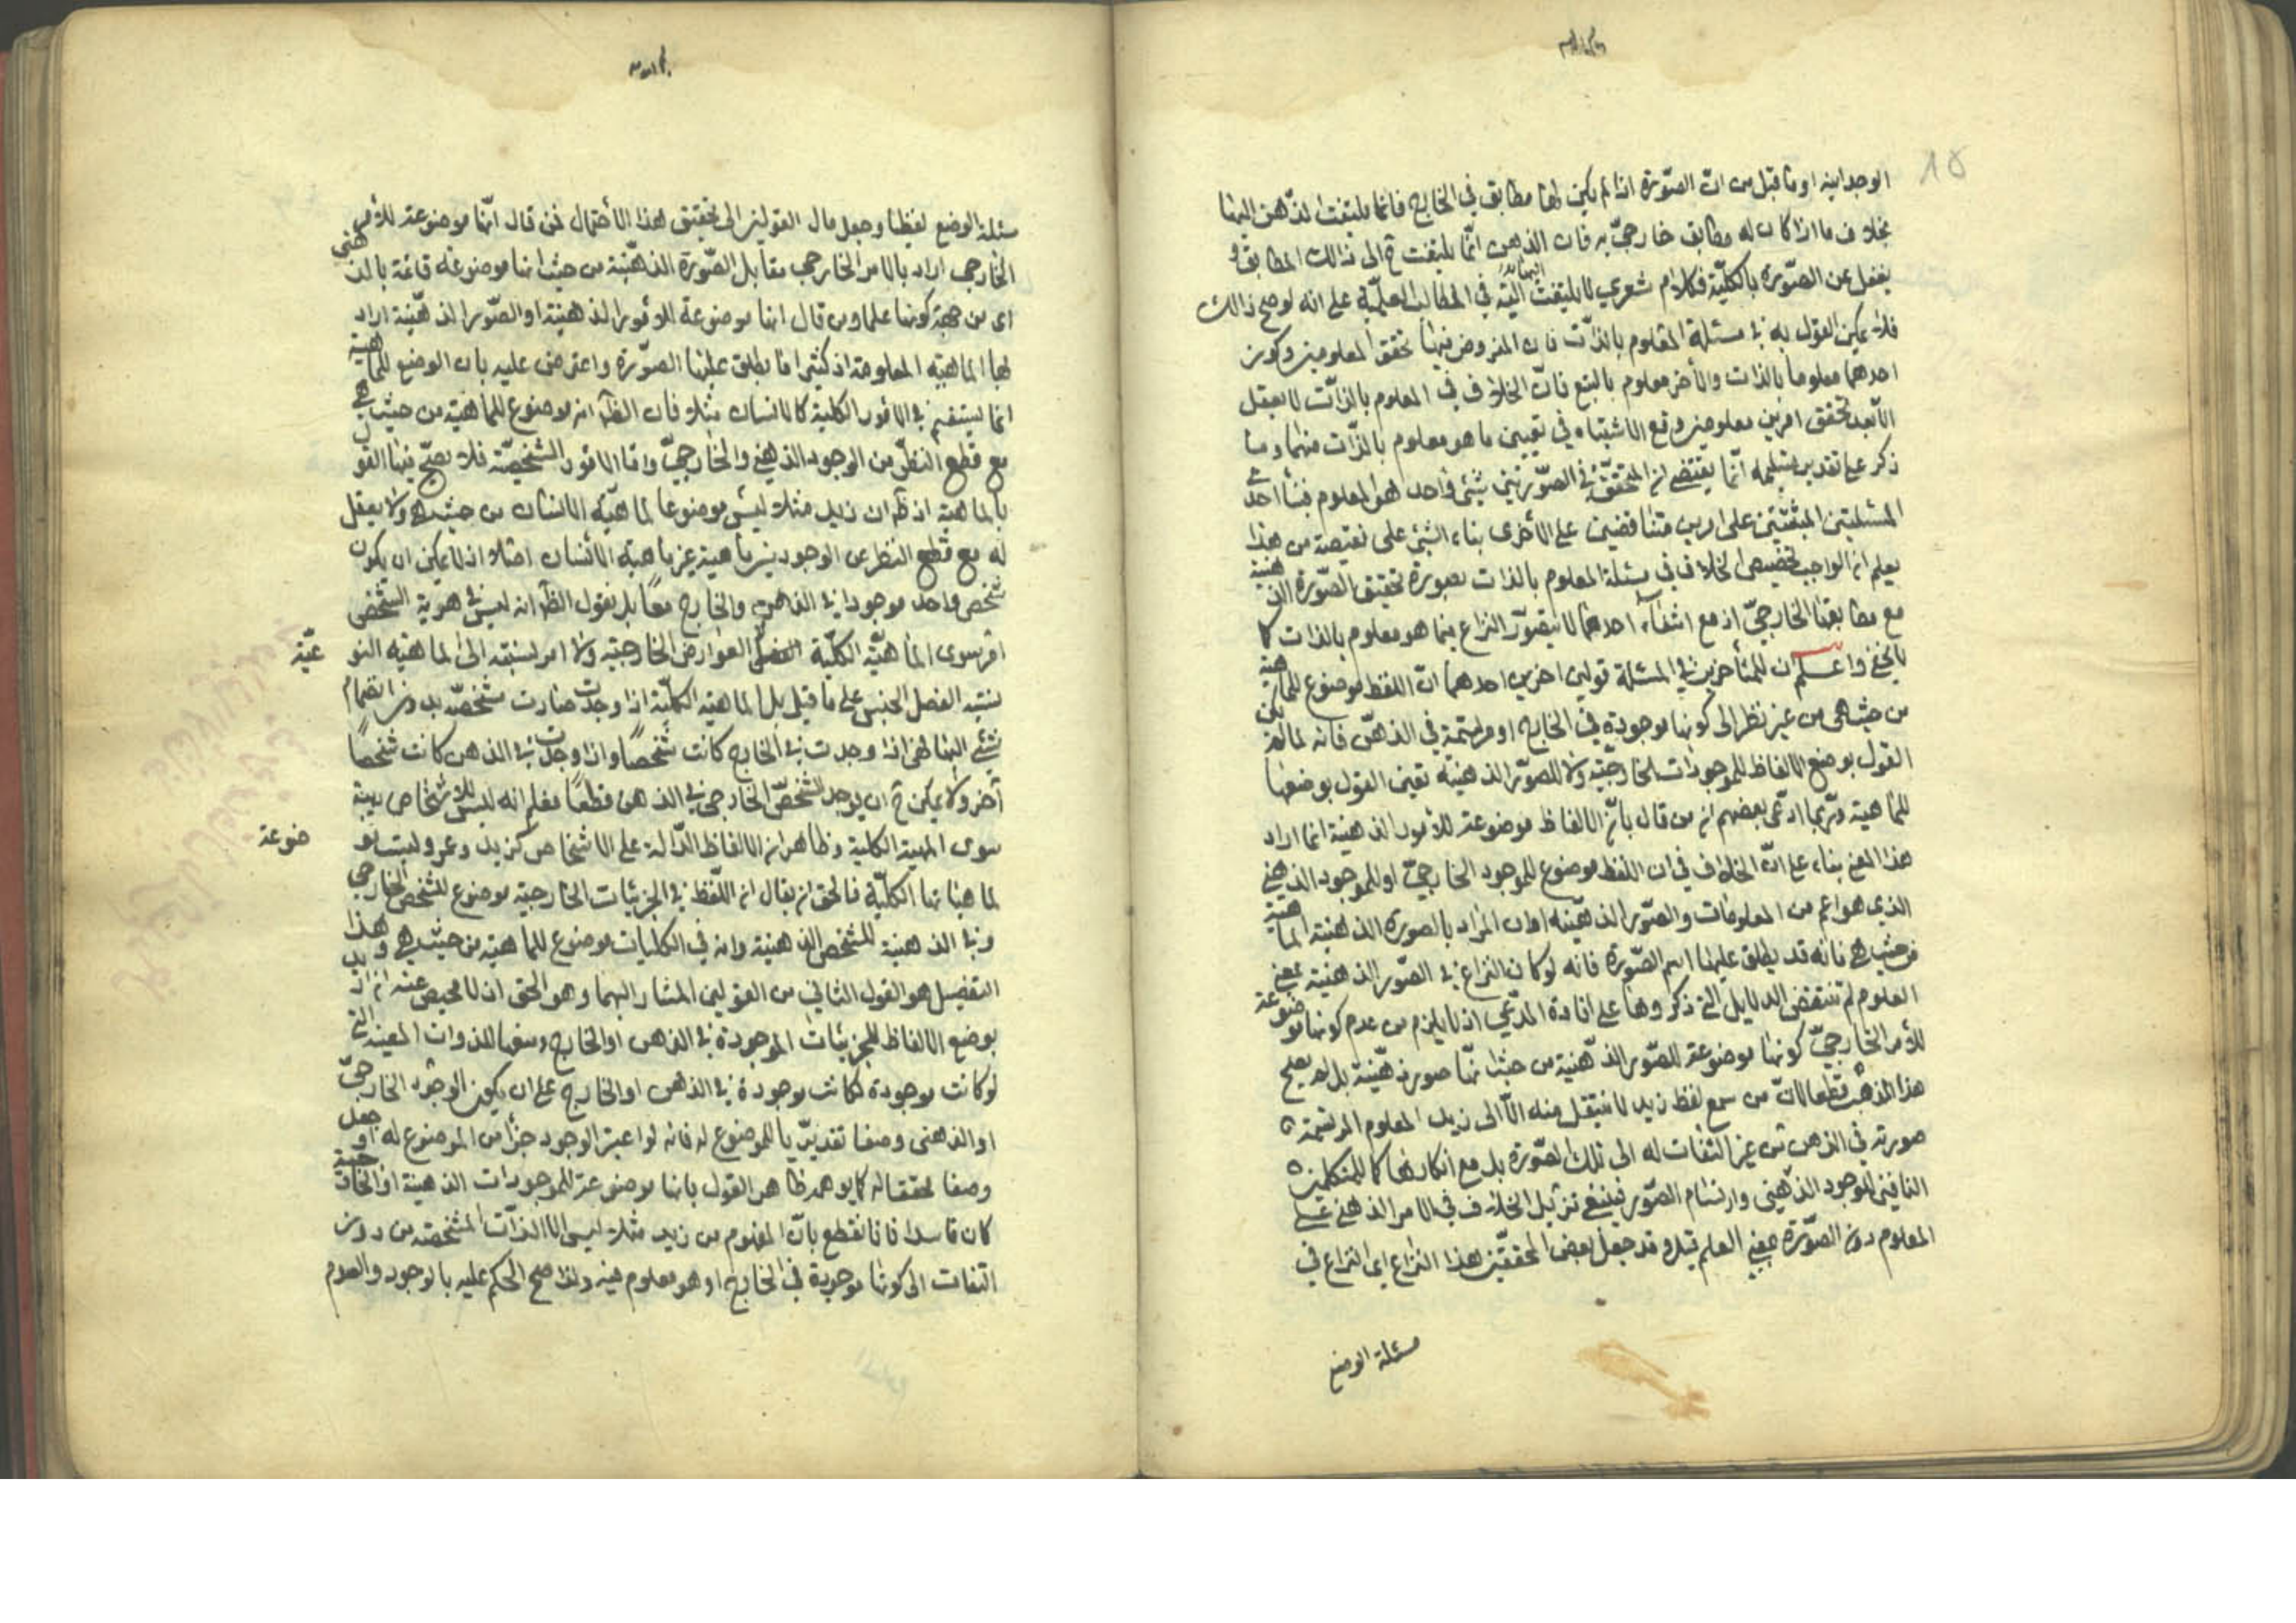 الوجدانية او ما قيل من ان الصّورة اذا لم يكن لها مطابق في الخارج فانما يلتفت الذهن اليها
بخلاف ما اذا كان له مطابق خارجيّ به فان الذهن انّما يلتفت ح الى ذالك المطابق و
يغفل عن الصّورة بالكليّة فكلام شعري لا يلتفت اليه في المطالب العلميّة على انه لو صح ذالك
فلا يمكن القول به في مسئلة المعلوم بالذّات فان المفروض فيها تحقق المعلومين وكون
احدهما معلوما بالذات والأخر معلوم بالتبع فانّ الخلاف في المعلوم بالذّات لا يعقل
الا بعد تحقق امرين معلومين وقع الاشتباه في تعيين ما هو معلوم بالذّات منهما وما
ذكر على تقدير تسليمه انّما يقتضي ان المتحقق في الصّورتين شيئ واحد هو المعلوم فبناء احدى
المسئلتين المبتنيتين على امرين متناقضين على الأخرى بناء الشيئ على نقيضه من هذا
يعلم ان الواجب تخصيص الخلاف في مسئلة المعلوم بالذات بصورة تحقيق الصّورة الذهنية
مع مطابقها الخارجيّ اذ مع انتفاء احدهما لا يتصوّر النزاع فيما هو معلوم بالذات كما
لا يخفى واعلم ان للمتأخرين في المسئلة قولين اخرين احدهما انّ اللفظ موضوع للماهية
من حيث هى من غير نظر الى كونها موجودة في الخارج او مرتسمة في الذهن فانه لما لم يمكن
القول بوضع الالفاظ للموجودات الخارجيّة ولا للصوّر الذهنيّة تعين القول بوضعها
للماهية وربما ادعى بعضهم ان من قال بانّ الالفاظ موضوعة للأمور الذهنية انما اراد
هذا المعنى بناء على انّ الخلاف في ان اللفظ موضوع للموجود الخارجيّ او للموجود الذهني
الذي هو اعم من المعلومات والصّور الذهنيّة او ان المراد بالصورة الذهنية الماهية
من حيث هي فانه قد يطلق عليها اسم الصّورة فانه لو كان النزاع في الصّور الذهنية بمعنى
العلوم لم تنتهض الدلايل التي ذكروها على افادة المدّعى اذ لا يلزم من عدم كونها موضوعة
للأمر الخارجيّ كونها موضوعة للصّور الذّهنية من حيث انّها صور ذهنيّة بل لم يصح
هذا المذهب قطعا لانّ من سمع لفظ زيد لا ينتقل منه الّا الى زيد المعلوم المرتسمة
صورته في الذهن من غير التفات له الى تلك الصّورة بل مع انكارها كما للمتكلمين
النافين للوجود الذّهني وارتسام الصّور فينبغي تنزيل الخلاف في الامر الذهني على
المعلوم دون الصّورة بمعنى العلم قيل وقد جعل بعض المحققين هذا النزاع اي النزاع في
مسئلة الوضع
مسئلة الوضع لفظيا وجعل مال القولين الى تحقيق هذا الأحتمال فمن قال انّها موضوعة للأمر
الخارجي اراد بالامر الخارجي مقابل الصّورة الذهنيّة من حيث انها موضوعه قائمة بالذهني
اى من جهة كونها علما ومن قال انها موضوعة للأمور الذهنية او الصّور الذهنيّة اراد
بها الماهية المعلومة اذ كثيرا ما يطلق عليها الصّورة واعترض عليه بان الوضع للماهية
انما يستقيم في الامور الكلية كالانسان مثلا فان الظّ انه موضوع للماهية من حيث هي
مع قطع النظر من الوجود الذهني والخارجيّ واما الامور الشّخصيّة فلا يصحّ فيها القول
بالماهية اذ ظ ان زيد مثلا ليس موضوعا لماهيّة الانسان من حيث هي ولا يعقل
له مع قطع النظر عن الوجودين ماهية غير ماهية الانسان مثلا اذ لا يمكن ان يكون
شخص واحد موجودا في الذهن والخارج معا بل نقول الظّ انه ليس في هوية الشخص
امر سوى الماهيّة الكليّة العوارض الخارجيّه ولا امر نسبته الى الماهيّه النوعيّة
نسبته الفصل الجنس على ما قيل بل الماهية الكليّة اذا وجدت صارت شخصّه بدون انضمام
شيئ اليها لهى اذا وجدت في الخارج كانت شخصًا واذا وجدت في الذهن كانت شخصًا
آخر ولا يمكن ح ان يوجد الشّخص الخارجي في الذهن قطعا فعلم انه ليس للاشخاص
سوى المهية الكلية وظاهر ان الالفاظ الدّالة على الاشخاص كزيد وعمرو ليست موضوعة
لماهياتها الكليّة فالحق ان يقال ان اللّفظ في الجزئيات الخارجيّه موضوع للشخص الخارجي
وفي الذهنية للشخص الذهنية وانه في الكليات موضوع للماهية من حيث هي وهذا
التفصيل هو القول الثاني من القولين المشار اليهما وهو الحق اذ لا محيص عنه ان اريد
بوضع الالفاظ للجزئيات الموجودة في الذهن او الخارج وضعها للذوات المعينة التي
لو كانت موجودة لكانت موجودة في الذهن او الخارج على ان يكون الوجود الخارجيّ
او الذهنى وصفا تقديريّا للموضوع له فانه لو اعتبر الوجود جزأ من الموضوع له او جعل
وصفا محققا له كما يوهمه ظاهر القول بانها موضوعة للموجودات الذهنية او الخارجية
كان فاسدا فانا نقطع بانّ المفهوم من زيد مثلا ليس الا الذّات المشخصه من دون
التفات الى كونها موجودة في الخارج او هو معلوم فيه ولذا صح الحكم عليه بالوجود والعدم